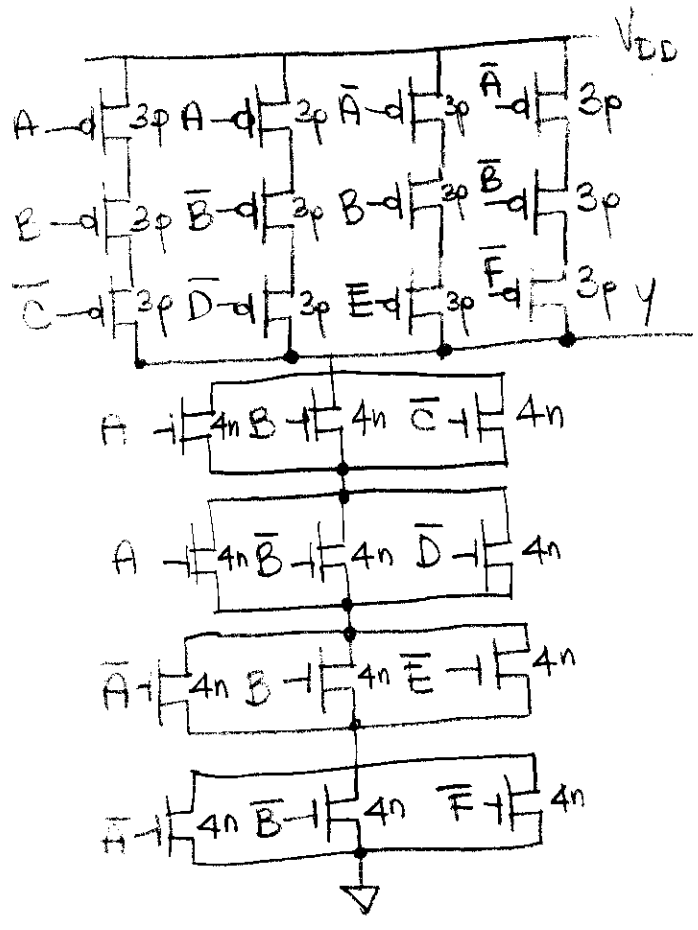 V_DD
A 3p A 3p A̅ 3p A̅ 3p
B 3p B̅ 3p B 3p B̅ 3p
C̅ 3p D̅ 3p E̅ 3p F̅ 3p Y
A 4n B 4n C̅ 4n
A 4n B̅ 4n D̅ 4n
A̅ 4n B 4n E̅ 4n
A̅ 4n B̅ 4n F̅ 4n